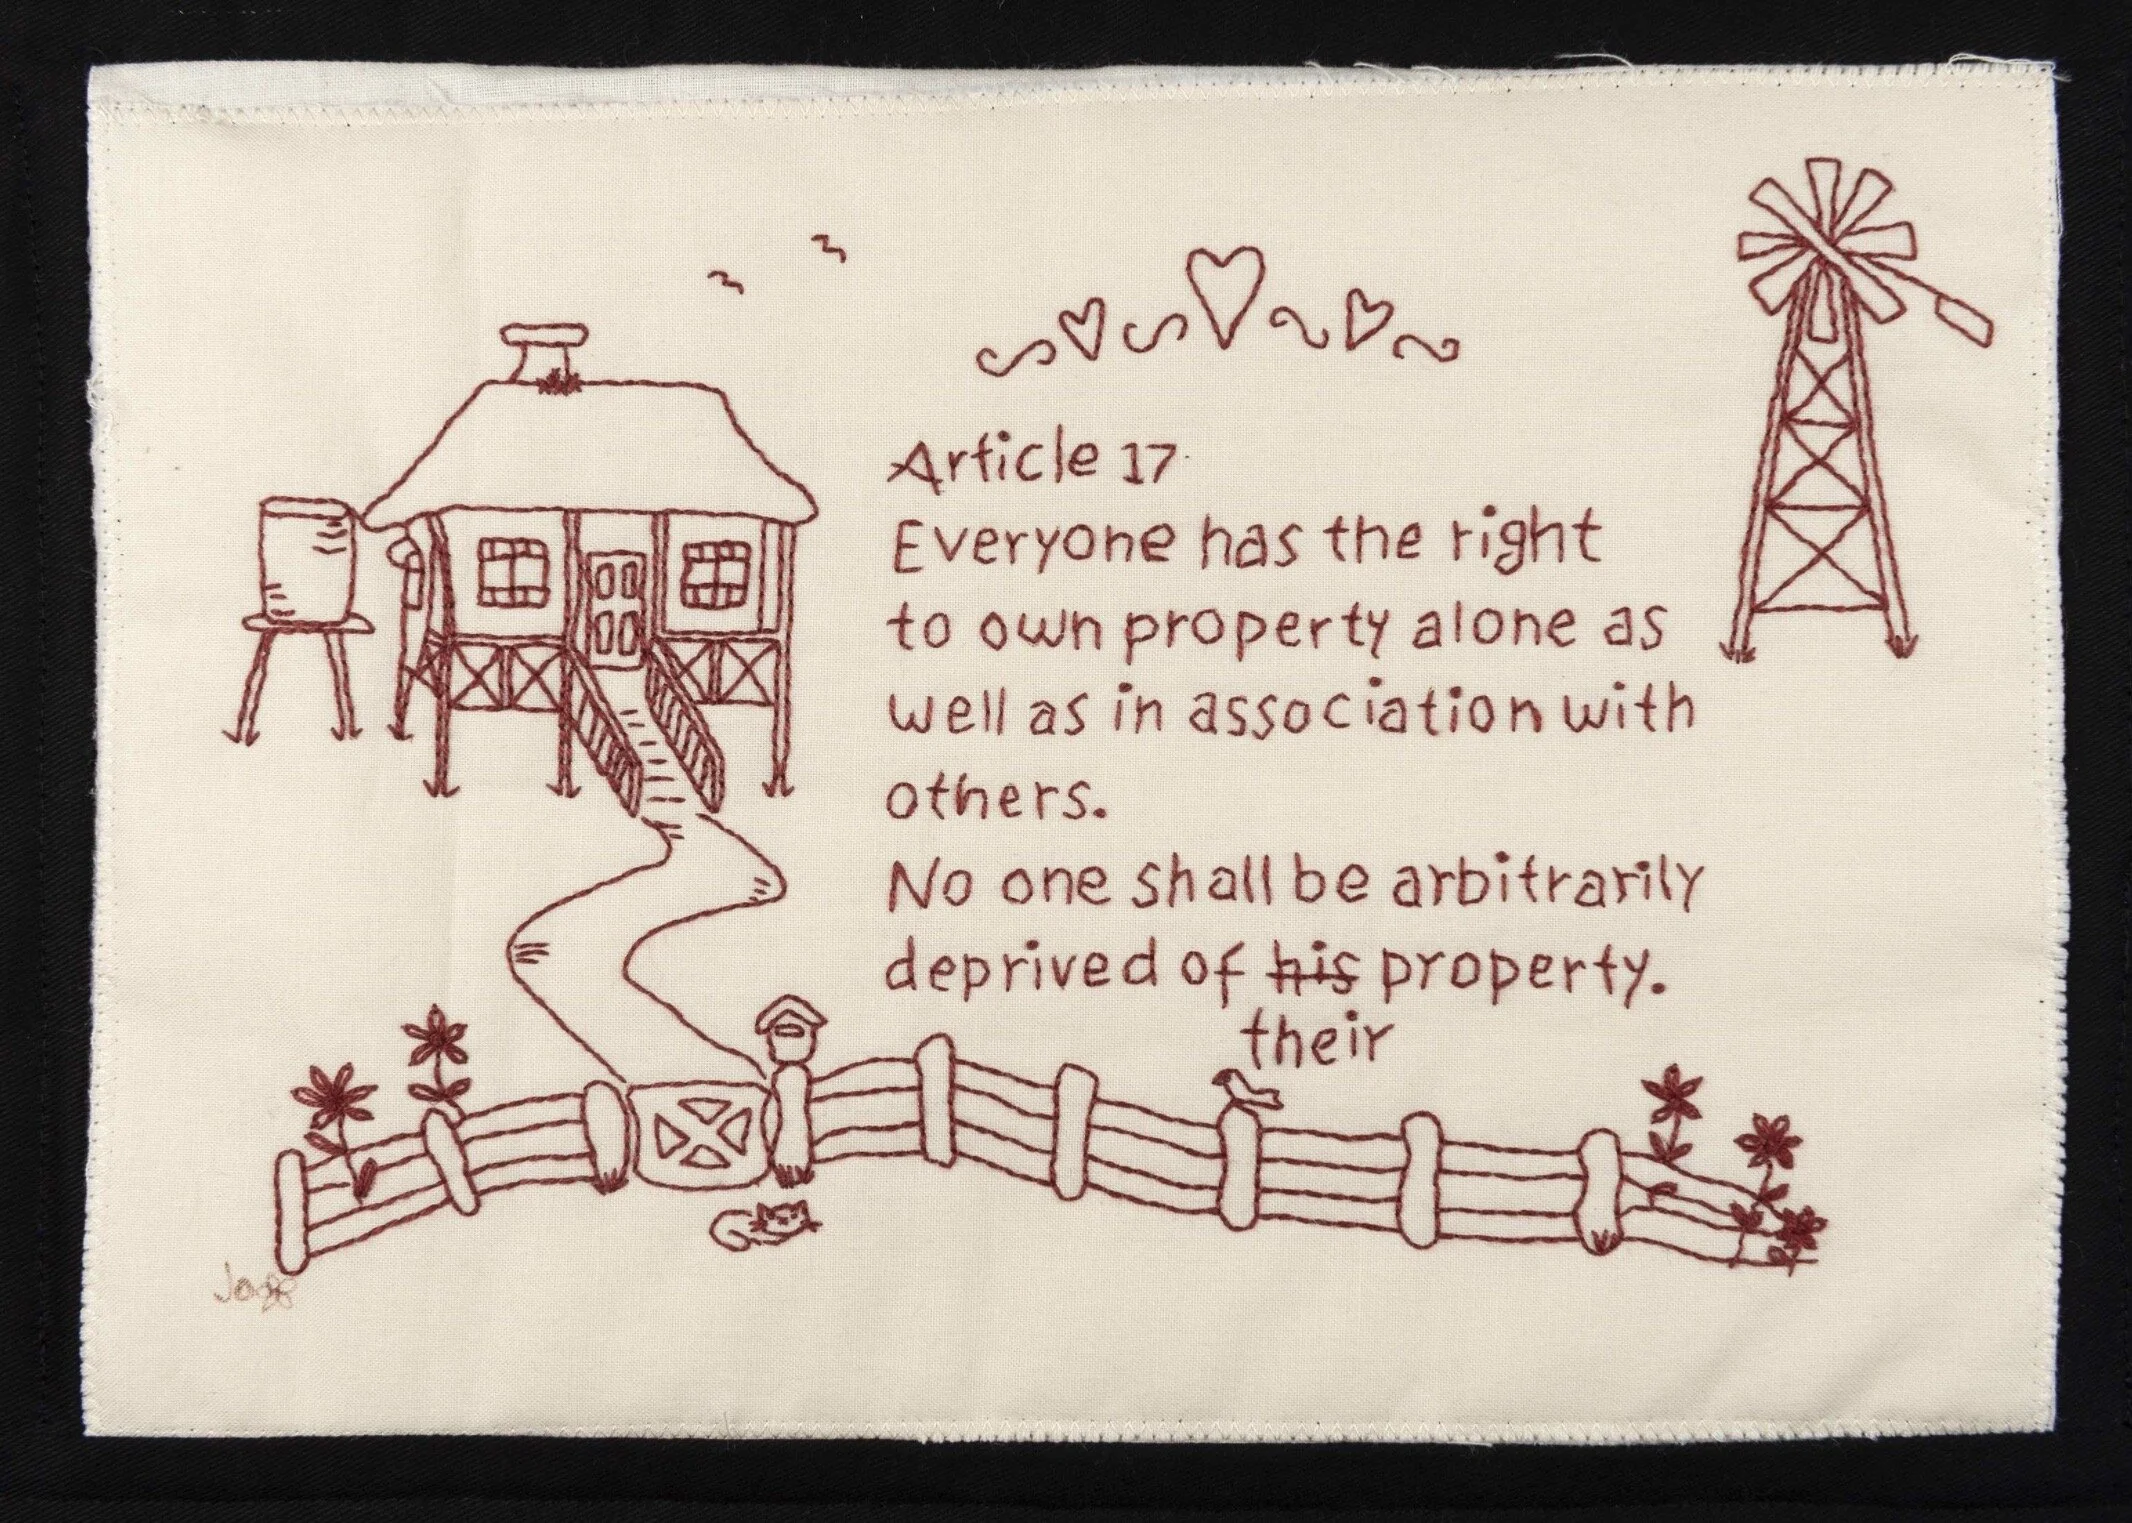 Article 17
Everyone has the right
to own property alone as
well as in association with
others.
No one shall be arbitrarily
deprived of his property.
their